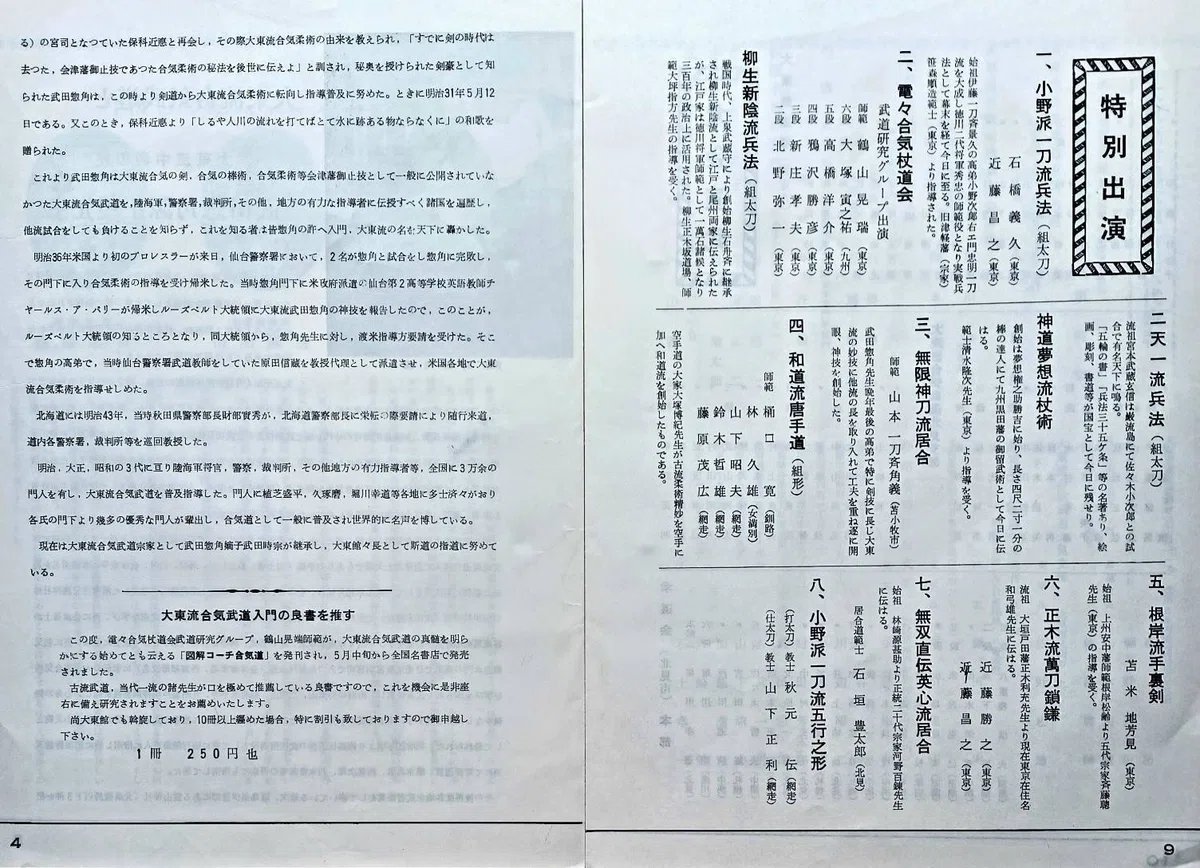 る）の宮司となつていた保科近悳と再会し，その際大東流合気柔術の由来を教えられ，「すでに剣の時代は
去つた，会津藩御止技であつた合気柔術の秘法を後世に伝えよ」と訓され，秘奥を授けられた剣豪として知
られた武田惣角は，この時より剣道から大東流合気柔術に転向し指導普及に努めた。ときに明治31年５月12
日である。又このとき，保科近悳より「しるや人川の流れを打てばとて水に跡ある物ならなくに」の和歌を
贈られた。
これより武田惣角は大東流合気の剣，合気の棒術，合気柔術等会津藩御止技として一般に公開されていな
かつた大東流合気武道を，陸海軍，警察署，裁判所，その他，地方の有力な指導者に伝授すべく諸国を遍歴し，
他流試合をしても負けることを知らず，これを知る者は皆惣角の許へ入門，大東流の名を天下に轟かした。
明治36年米国より初のプロレスラーが来日，仙台警察署において，２名が惣角と試合をし惣角に完敗し，
その門下に入り合気柔術の指導を受け帰米した。当時惣角門下に米政府派遣の仙台第２高等学校英語教師チ
ヤールス・ア・パリーが帰米しルーズベルト大統領に大東流武田惣角の神技を報告したので，このことが，
ルーズベルト大統領の知るところとなり，同大統領から，惣角先生に対し，渡米指導方要請を受けた。そこ
で惣角の高弟で，当時仙台警察署武道教師をしていた原田信蔵を教授代理として派遣させ，米国各地で大東
流合気柔術を指導せしめた。
北海道には明治43年，当時秋田県警察部長財部實秀が，北海道警察部長に栄転の際要請により随行来道，
道内各警察署，裁判所等を巡回教授した。
明治，大正，昭和の３代に亘り陸海軍将官，警察，裁判所，その他地方の有力指導者等，全国に３万余の
門人を有し，大東流合気武道を普及指導した。門人に植芝盛平，久琢磨，堀川幸道等各地に多士済々がおり
各氏の門下より幾多の優秀な門人が輩出し，合気道として一般に普及され世界的に名声を博している。
現在は大東流合気武道宗家として武田惣角嫡子武田時宗が継承し，大東館々長として斯道の指道に努めて
いる。
大東流合気武道入門の良書を推す
この度，電々合気杖道会武道研究グループ，鶴山晃端師範が，大東流合気武道の真髄を明ら
かにする始めてとも云える「図解コーチ合気道」を発刊され，５月中旬から全国名書店で発売
されました。
古流武道，当代一流の諸先生が口を極めて推薦している良書ですので，これを機会に是非座
右に備え研究されますことをお薦めいたします。
尚大東館でも斡旋しており，10冊以上纒めた場合，特に割引も致しておりますので御申越し
下さい。
1冊 250円也
4
特別出演
一、小野派一刀流兵法（組太刀）
石橋義久（東京）
近藤昌之（東京）
始祖伊藤一刀斉景久の高弟小野次郎右エ門忠明一刀
流を大成し徳川二代将軍秀忠の師範役となり実戦兵
法として幕末を経て今日に至る。旧津軽藩（宗家）
笹森順造範士（東京）より指導された。
二、電々合気杖道会
武道研究グループ出演
師範 鶴山晃瑞（東京）
六段 大塚寅之祐（九州）
五段 高橋洋介（東京）
四段 鵜沢勝彦（東京）
三段 新庄孝夫（東京）
二段 北野弥一（東京）
柳生新陰流兵法（組太刀）
戦国時代、上泉武蔵守により創始柳生石舟斉に継承
され柳生新陰流として江戸と尾州両家に伝えられた
が、江戸家は徳川将軍師範として一萬石諸候となり
三百年の政治上に活用された。柳生正木坂道場、師
範大坪指方先生の指導を受く。
二天一流兵法（組太刀）
流祖宮本武蔵玄信は巌流島にて佐々木小次郎との試
合で有名天下に鳴る。
「五輪の書」「兵法三十五ケ条」等の名著あり、絵
画、彫刻、書道等が国宝として今日に残せり。
神道夢想流杖術
創始は夢想権之助勝吉に始り、長さ四尺二寸一分の
棒の達人にて九州黒田藩の御留武術として今日に伝
はる。
範士清水隆次先生（東京）より指導を受く。
三、無限神刀流居合
師範 山本一刀斉角義（苫小牧市）
武田惣角先生晩年最後の高弟で特に剣技に長じ大東
流の妙技に他流の長を取り入れて工夫を重ね遂に開
眼、神技を創始した。
四、和道流唐手道（組形）
師範 桶口寛（釧路）
林久雄（女満別）
山下昭夫（網走）
鈴木哲雄（網走）
藤原茂広（網走）
空手道の大家大塚博紀先生が古流柔術精妙を空手に
加へ和道流を創始したものである。
五、根岸流手裏剣
苫米地芳見（東京）
始祖 上州安中藩師範根岸松齢より五代宗家斉藤聰
先生（東京）の指導を受く。
六、正木流萬刀鎖鎌
近藤勝之（東京）
近藤昌之（東京）
流祖 大垣戸田藩正木利充先生より現在東京在住名
和弓雄先生に伝はる。
七、無双直伝英心流居合
始祖 林崎源甚助より正統二十代宗家河野百錬先生
に伝はる。
居合道範士 石垣豊太郎（北見）
八、小野派一刀流五行之形
（打太刀）教士 秋元伝（網走）
（仕太刀）教士 山下正利（網走）
9